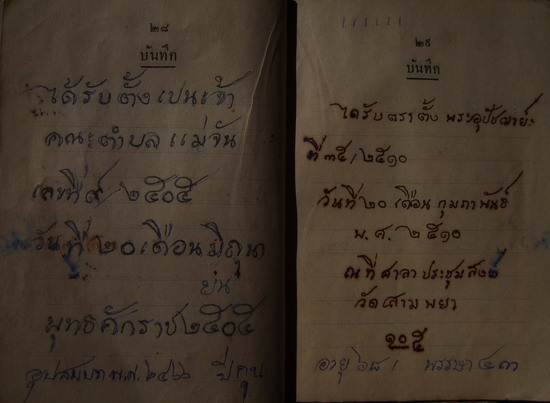 ๒๘
บันทึก
ได้รับตั้งเปนเจ้า
คณะตำบลแม่จัน
เลขที่ ๙/๒๕๐๕
วันที่ ๒๐ เดือนมิถุนา
ยน
พุทธศักราช ๒๕๐๕
อุปสมบท พ.ศ. ๒๔๖๖
๒๙
บันทึก
ได้รับตราตั้งพระอุปัชฌาย์ะ
ที่ ๓๕/๒๕๑๐
วันที่ ๒๐ เดือน กุมภาพันธ์
พ.ศ. ๒๕๑๐
ณ ที่ศาลาประชุมสงฆ์
วัดสามพยา
๑๐๕
อายุ ๖๘/ พรรษา ๔๓